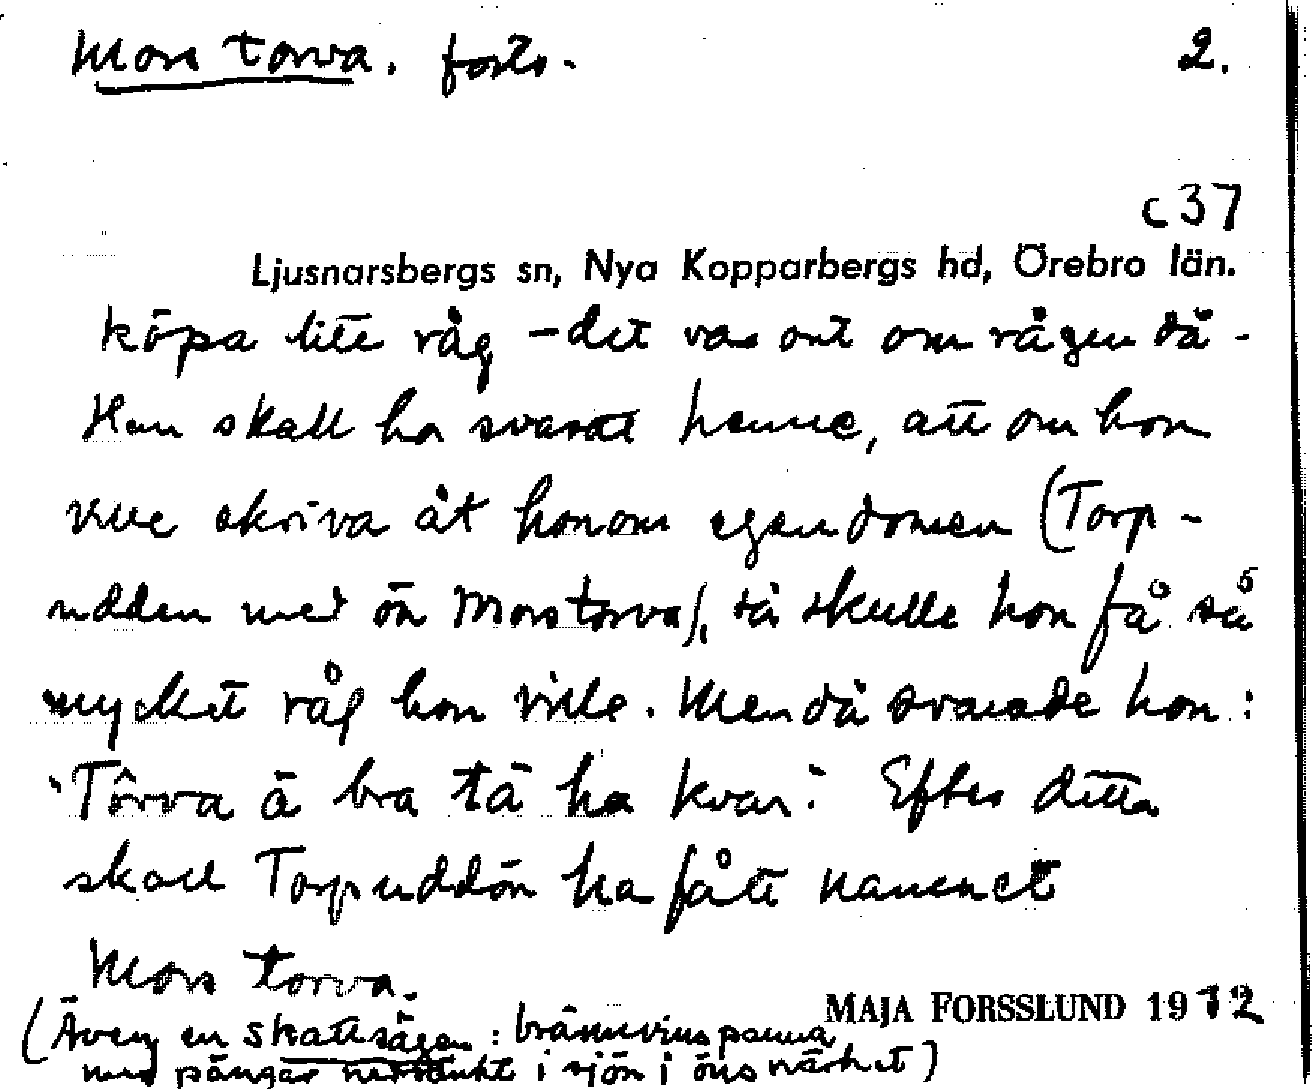 Mors torva. forts. 2.
c 37
Ljusnarsbergs sn, Nya Kopparbergs hd, Örebro län.
köpa lite råg – det var ont om rågen då –
Han skall ha svarat henne, att om hon
ville skriva åt honom egendomen (Torp-
udden med ön Mors torva), så skulle hon få så
mycket råg hon ville. Men då svarade hon:
"Tôrva ä bra tä ha kvar". Efter detta
skall Torpuddön ha fått namnet
Mors torva.
MAJA FORSSLUND 1972
(Även en skattsägen: brännvinspanna
med pängar nersänkt i sjön i öns närhet)